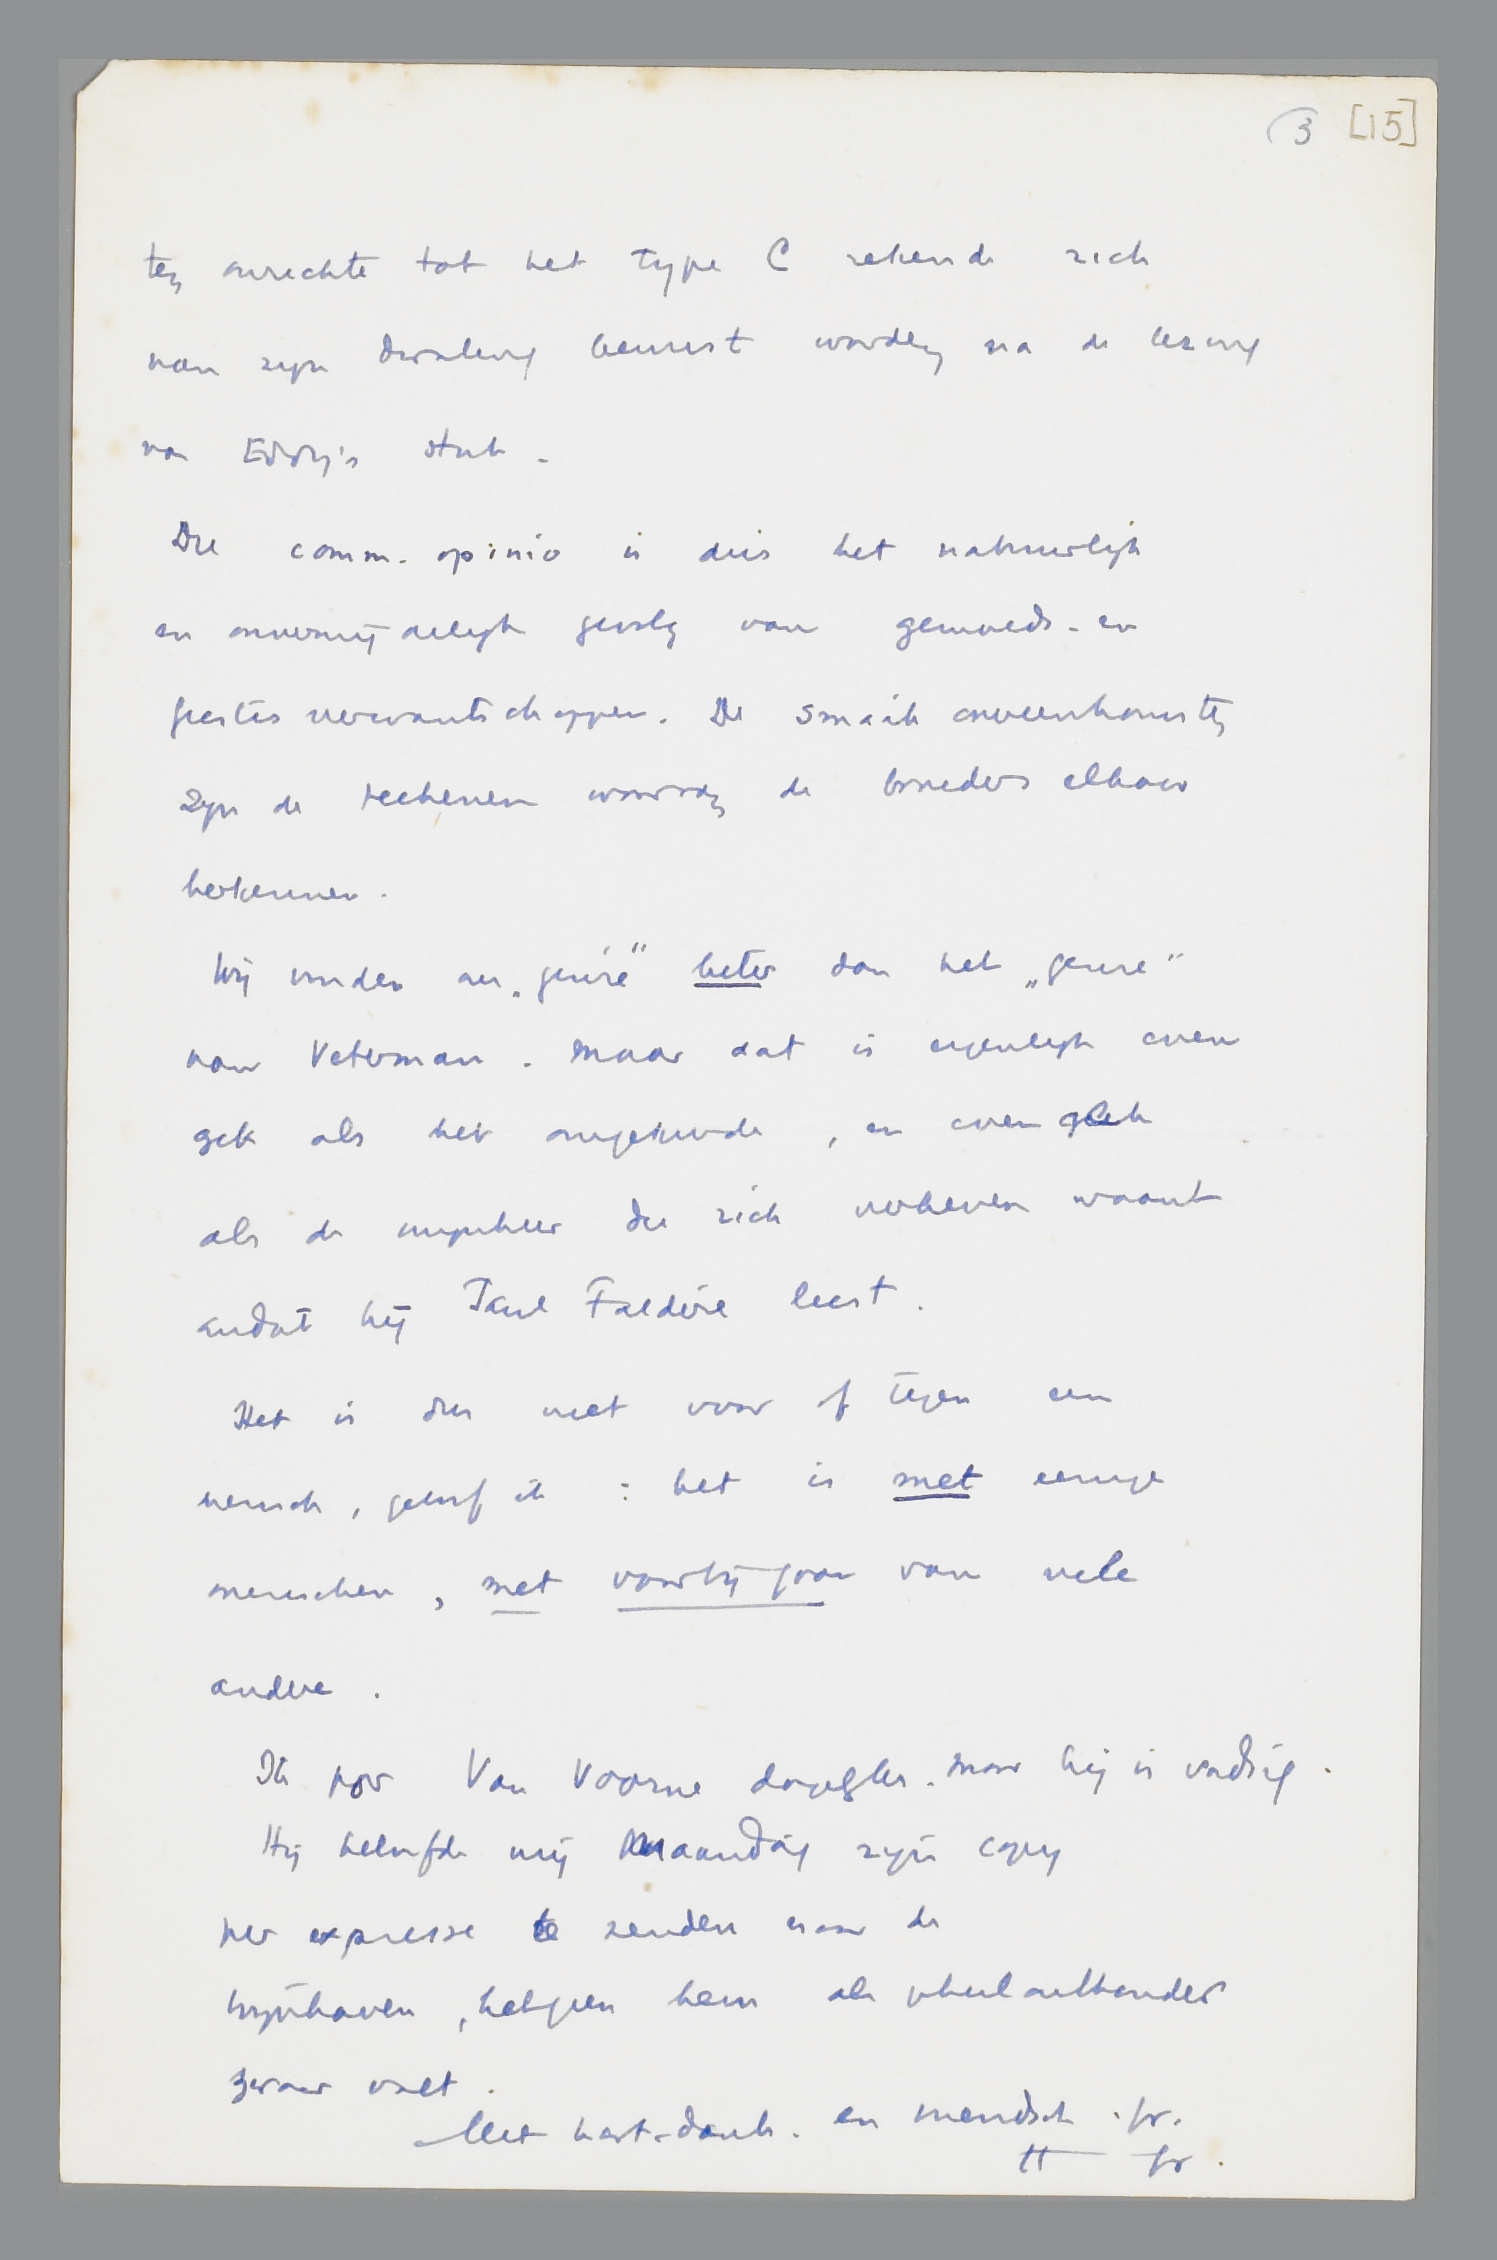 3 [15]
ten onrechte tot het type C rekende zich
van zijn dwaling bewust worden na de lezing
van Eddy's stuk.
Die comm. opinio is dus het natuurlijk
en onvermijdelijk gevolg van gemoeds- en
geestesverwantschappen. De smaakovereenkomsten
zijn de teekenen waaraan de broeders elkaar
herkennen.
Wij vinden ons „genre" beter dan het „genre"
van Veterman. Maar dat is eigenlijk even
gek als het omgekeerde, en even gek
als de mijnheer die zich verheven waant
omdat hij Paul Valéry leest.
Het is dus niet voor of tegen een
mensch, geloof ik : het is met eenige
menschen, met voorbijgaan van vele
andere.
Ik por Van Voorne dagelijks. Maar hij is vadsig.
Hij beloofde mij Maandag zijn copy
per expresse te zenden naar de
Wijnhaven, hetgeen hem als
zwaar valt.
Met hart. dank. en vriendsch. gr.